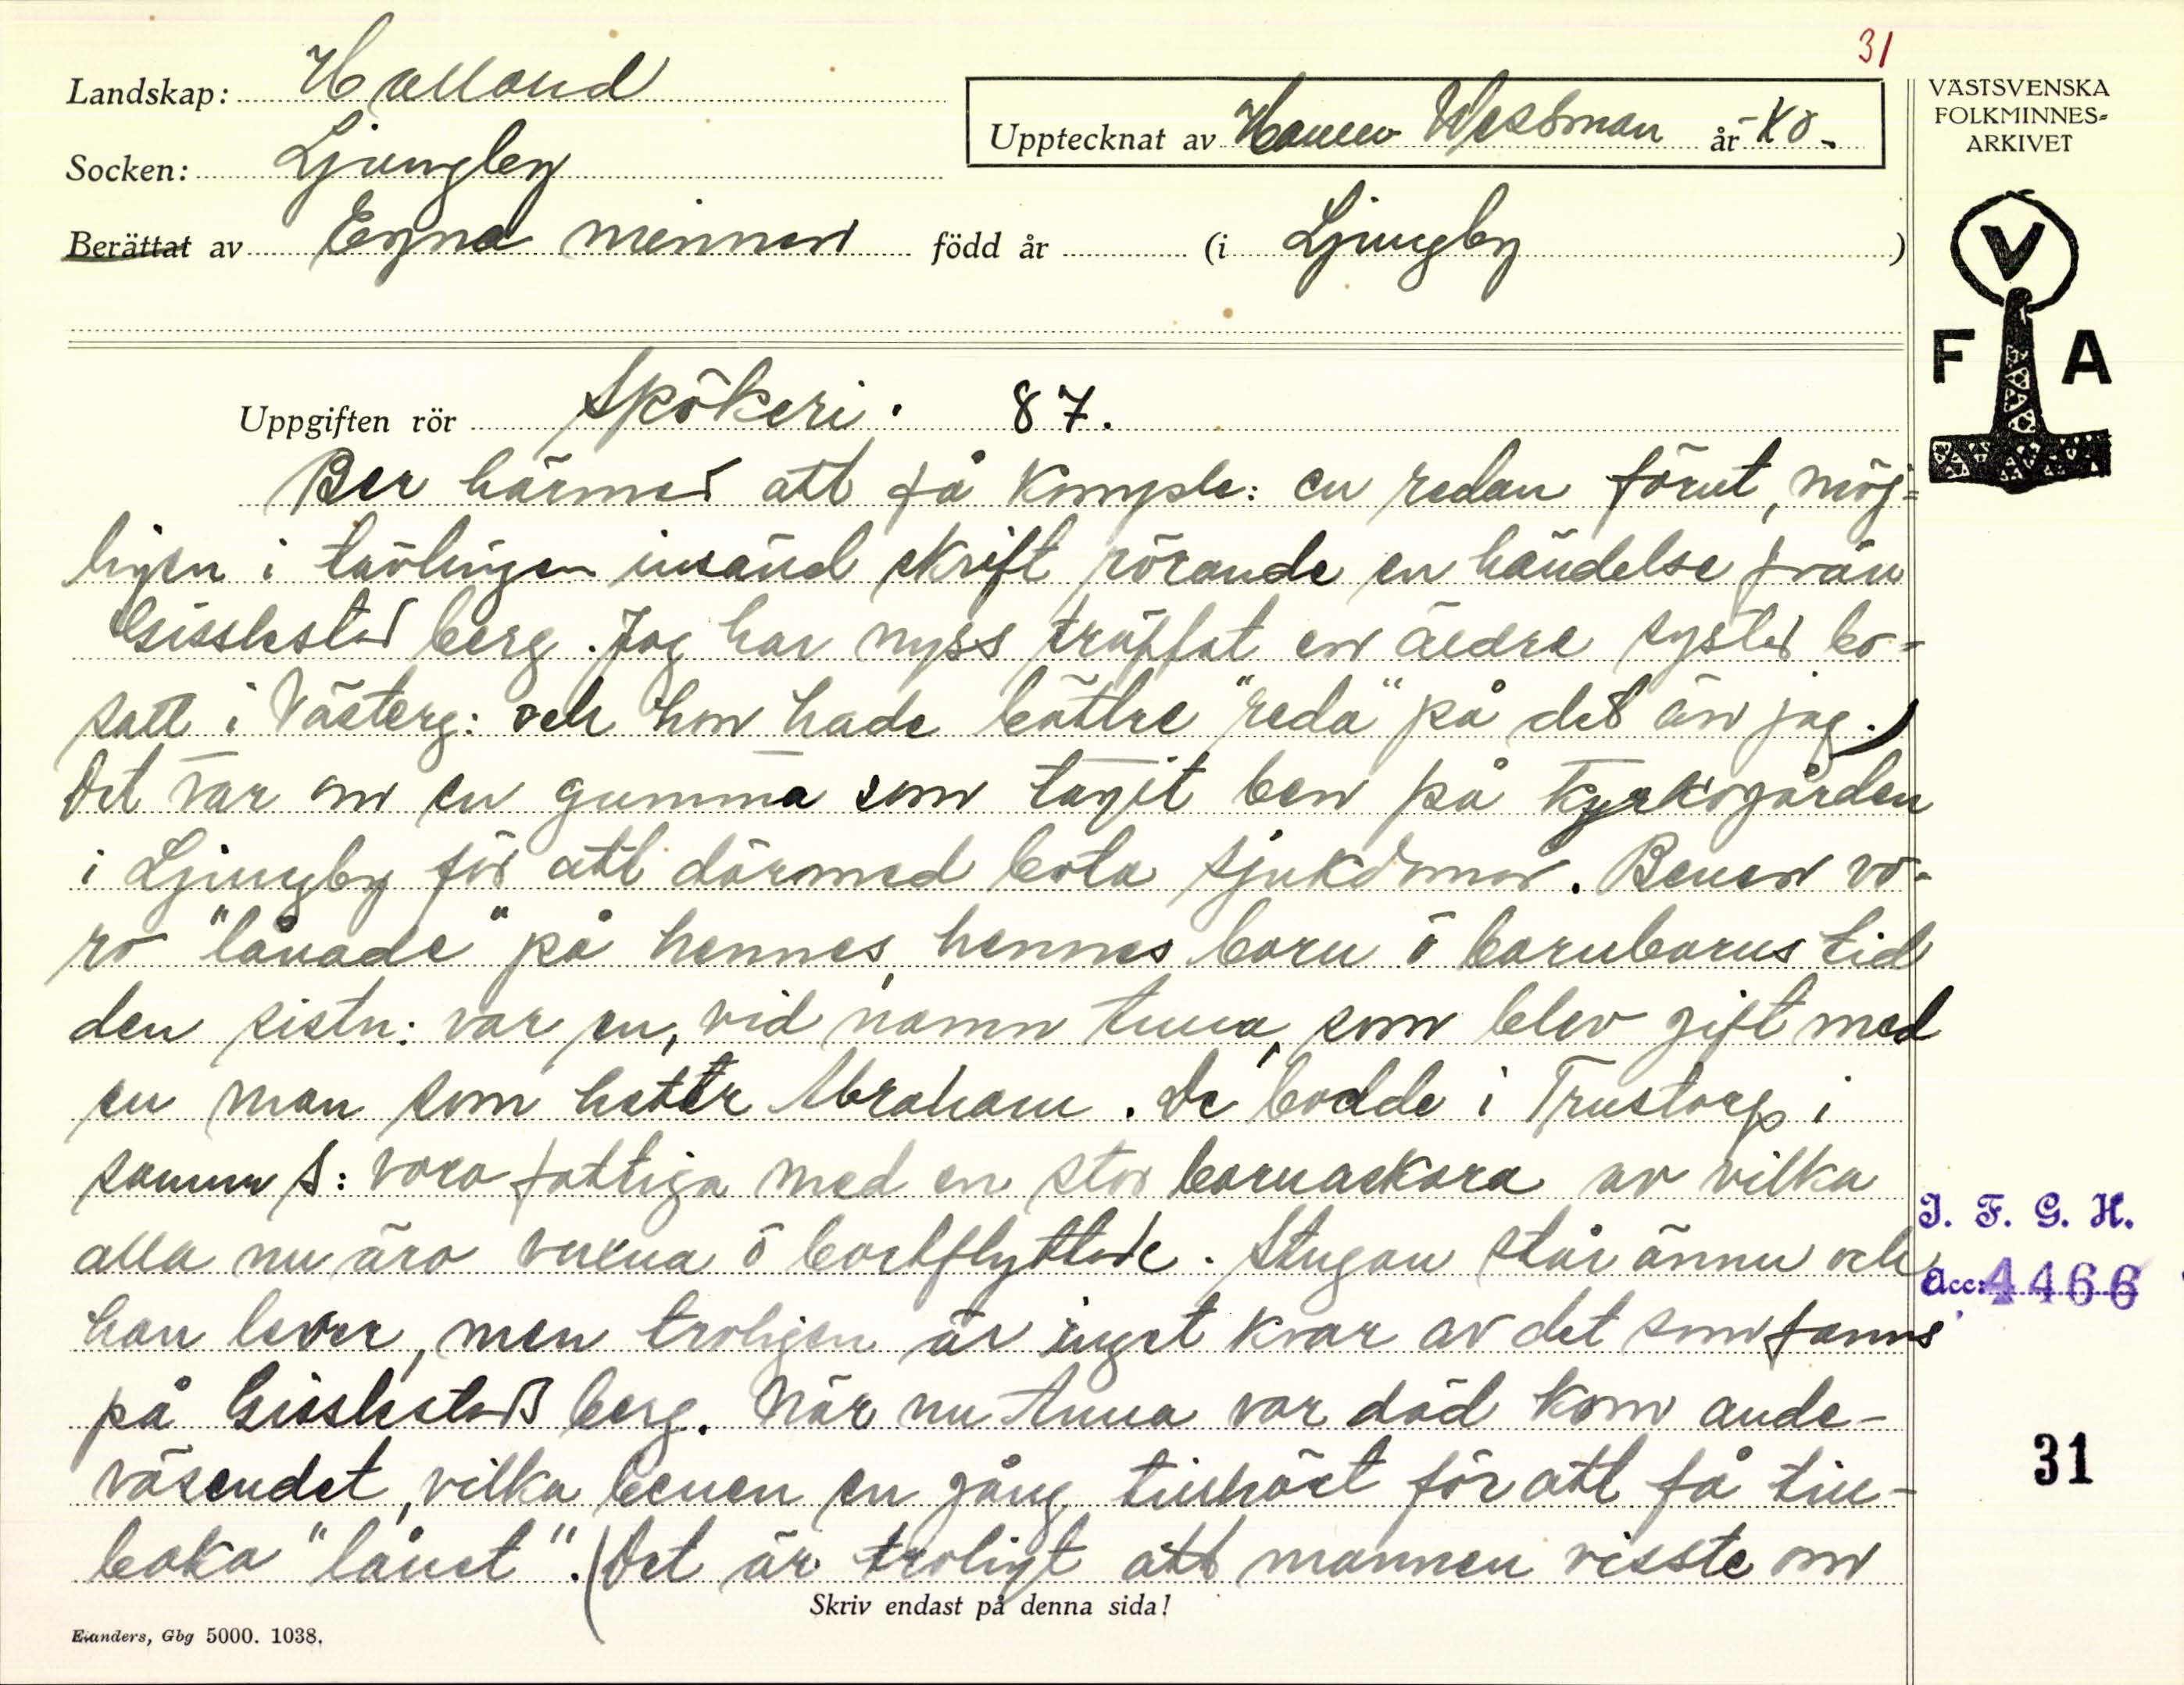 31
Landskap: Halland
Upptecknat av Westman år 40.
Socken: Ljungby
Berättat av Egna minnen född år (i Ljungby)
VÄSTSVENSKA
FOLKMINNES=
ARKIVET
V
F A
Uppgiften rör Spökeri. 87.
Ber härmed att få komple: en redan förut, möj=
ligen i tävlingen insänd skrift rörande en händelse från
Gisslestad berg. Jag har nyss träffat en äldre syster bo=
satt i Västerg: och hon hade bättre "reda" på det än jag.)
Det var om en gumma som tagit ben på kyrkogården
i Ljungby för att därmed bota sjukdomar. Benen vo-
ro "lånade" på hennes, hennes barn ö barnbarns tid
den sistn: var en, vid namn Anna, som blev gift med
en man som hette Abraham. De bodde i Trustorp i
samma S: voro fattiga med en stor barnaskara av vilka
alla nu äro vuxna ö bortflyttade. Stugan står ännu och
han lever, men troligen är inget kvar av det som fanns
på Gisslestads berg. När nu Anna var död kom ande-
väsendet, vilka benen en gång tillhört för att få till-
baka "lånet". (Det är troligt att mannen visste om
Skriv endast på denna sida!
Elanders, Gbg 5000. 1038.
I. F. G. H.
Acc: 4466
31